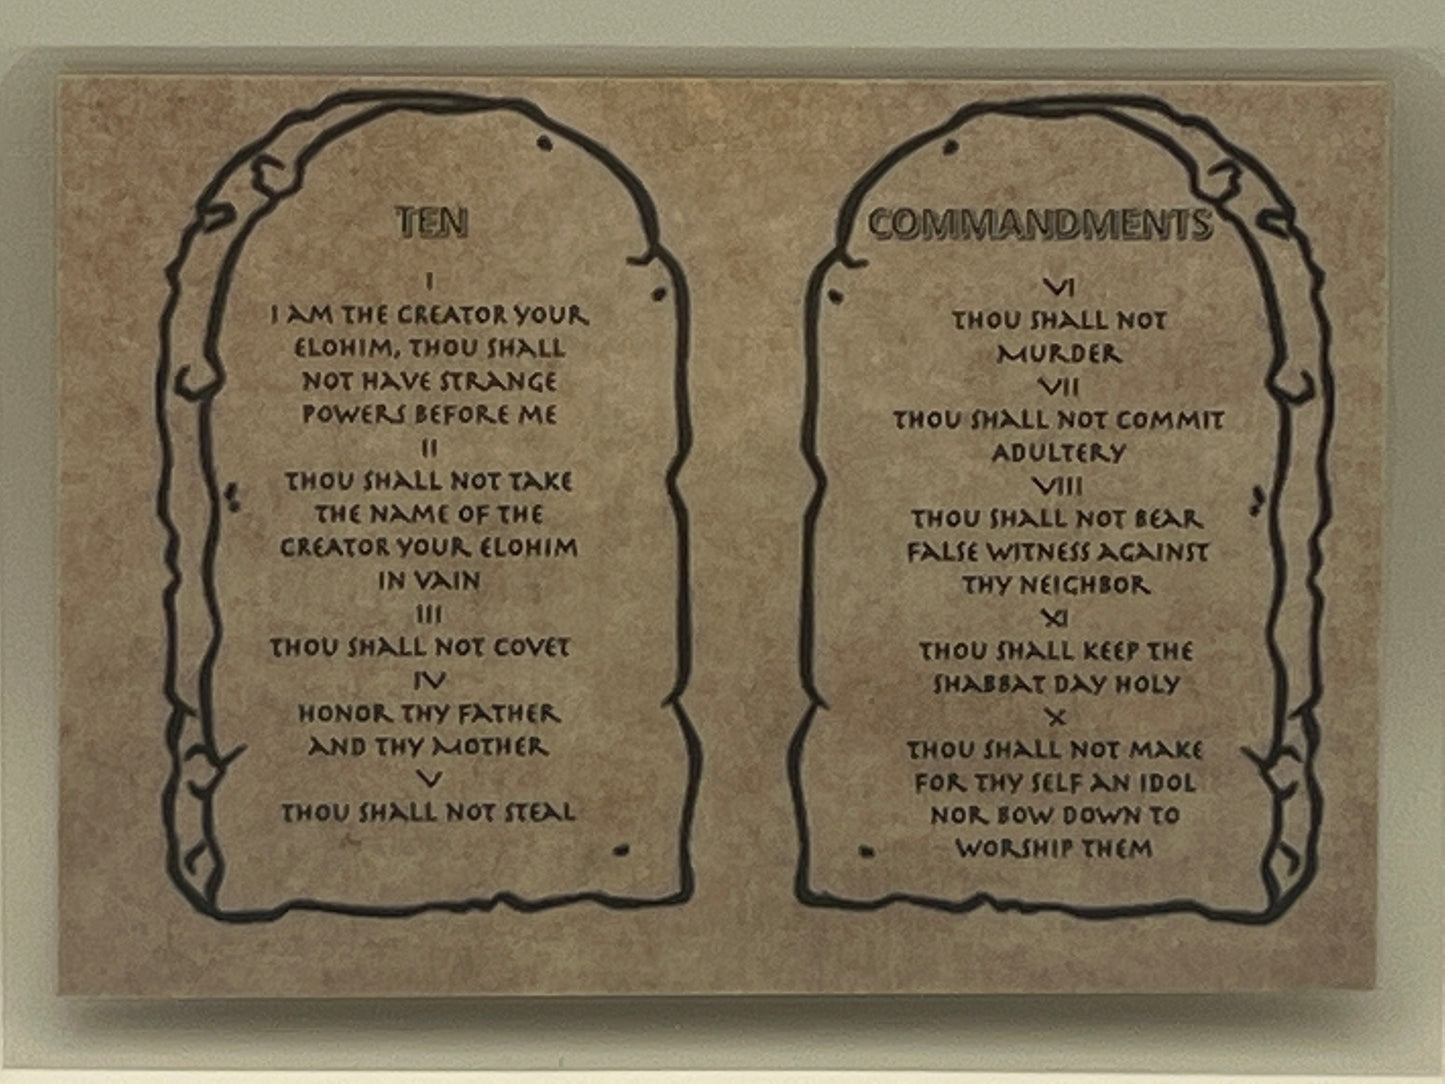 TEN
I
I AM THE CREATOR YOUR
ELOHIM, THOU SHALL
NOT HAVE STRANGE
POWERS BEFORE ME
II
THOU SHALL NOT TAKE
THE NAME OF THE
CREATOR YOUR ELOHIM
IN VAIN
III
THOU SHALL NOT COVET
IV
HONOR THY FATHER
AND THY MOTHER
V
THOU SHALL NOT STEAL
COMMANDMENTS
VI
THOU SHALL NOT
MURDER
VII
THOU SHALL NOT COMMIT
ADULTERY
VIII
THOU SHALL NOT BEAR
FALSE WITNESS AGAINST
THY NEIGHBOR
XI
THOU SHALL KEEP THE
SHABBAT DAY HOLY
X
THOU SHALL NOT MAKE
FOR THY SELF AN IDOL
NOR BOW DOWN TO
WORSHIP THEM